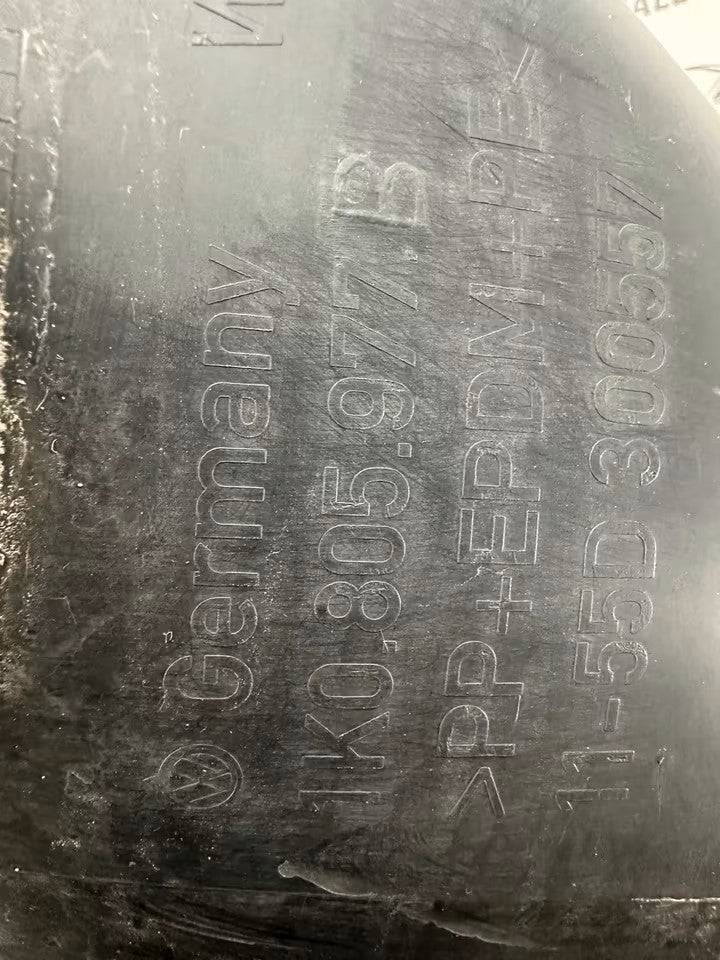 VW Germany
1K0.805.977.B
>PP+EPDM+PE<
11-55D 300557